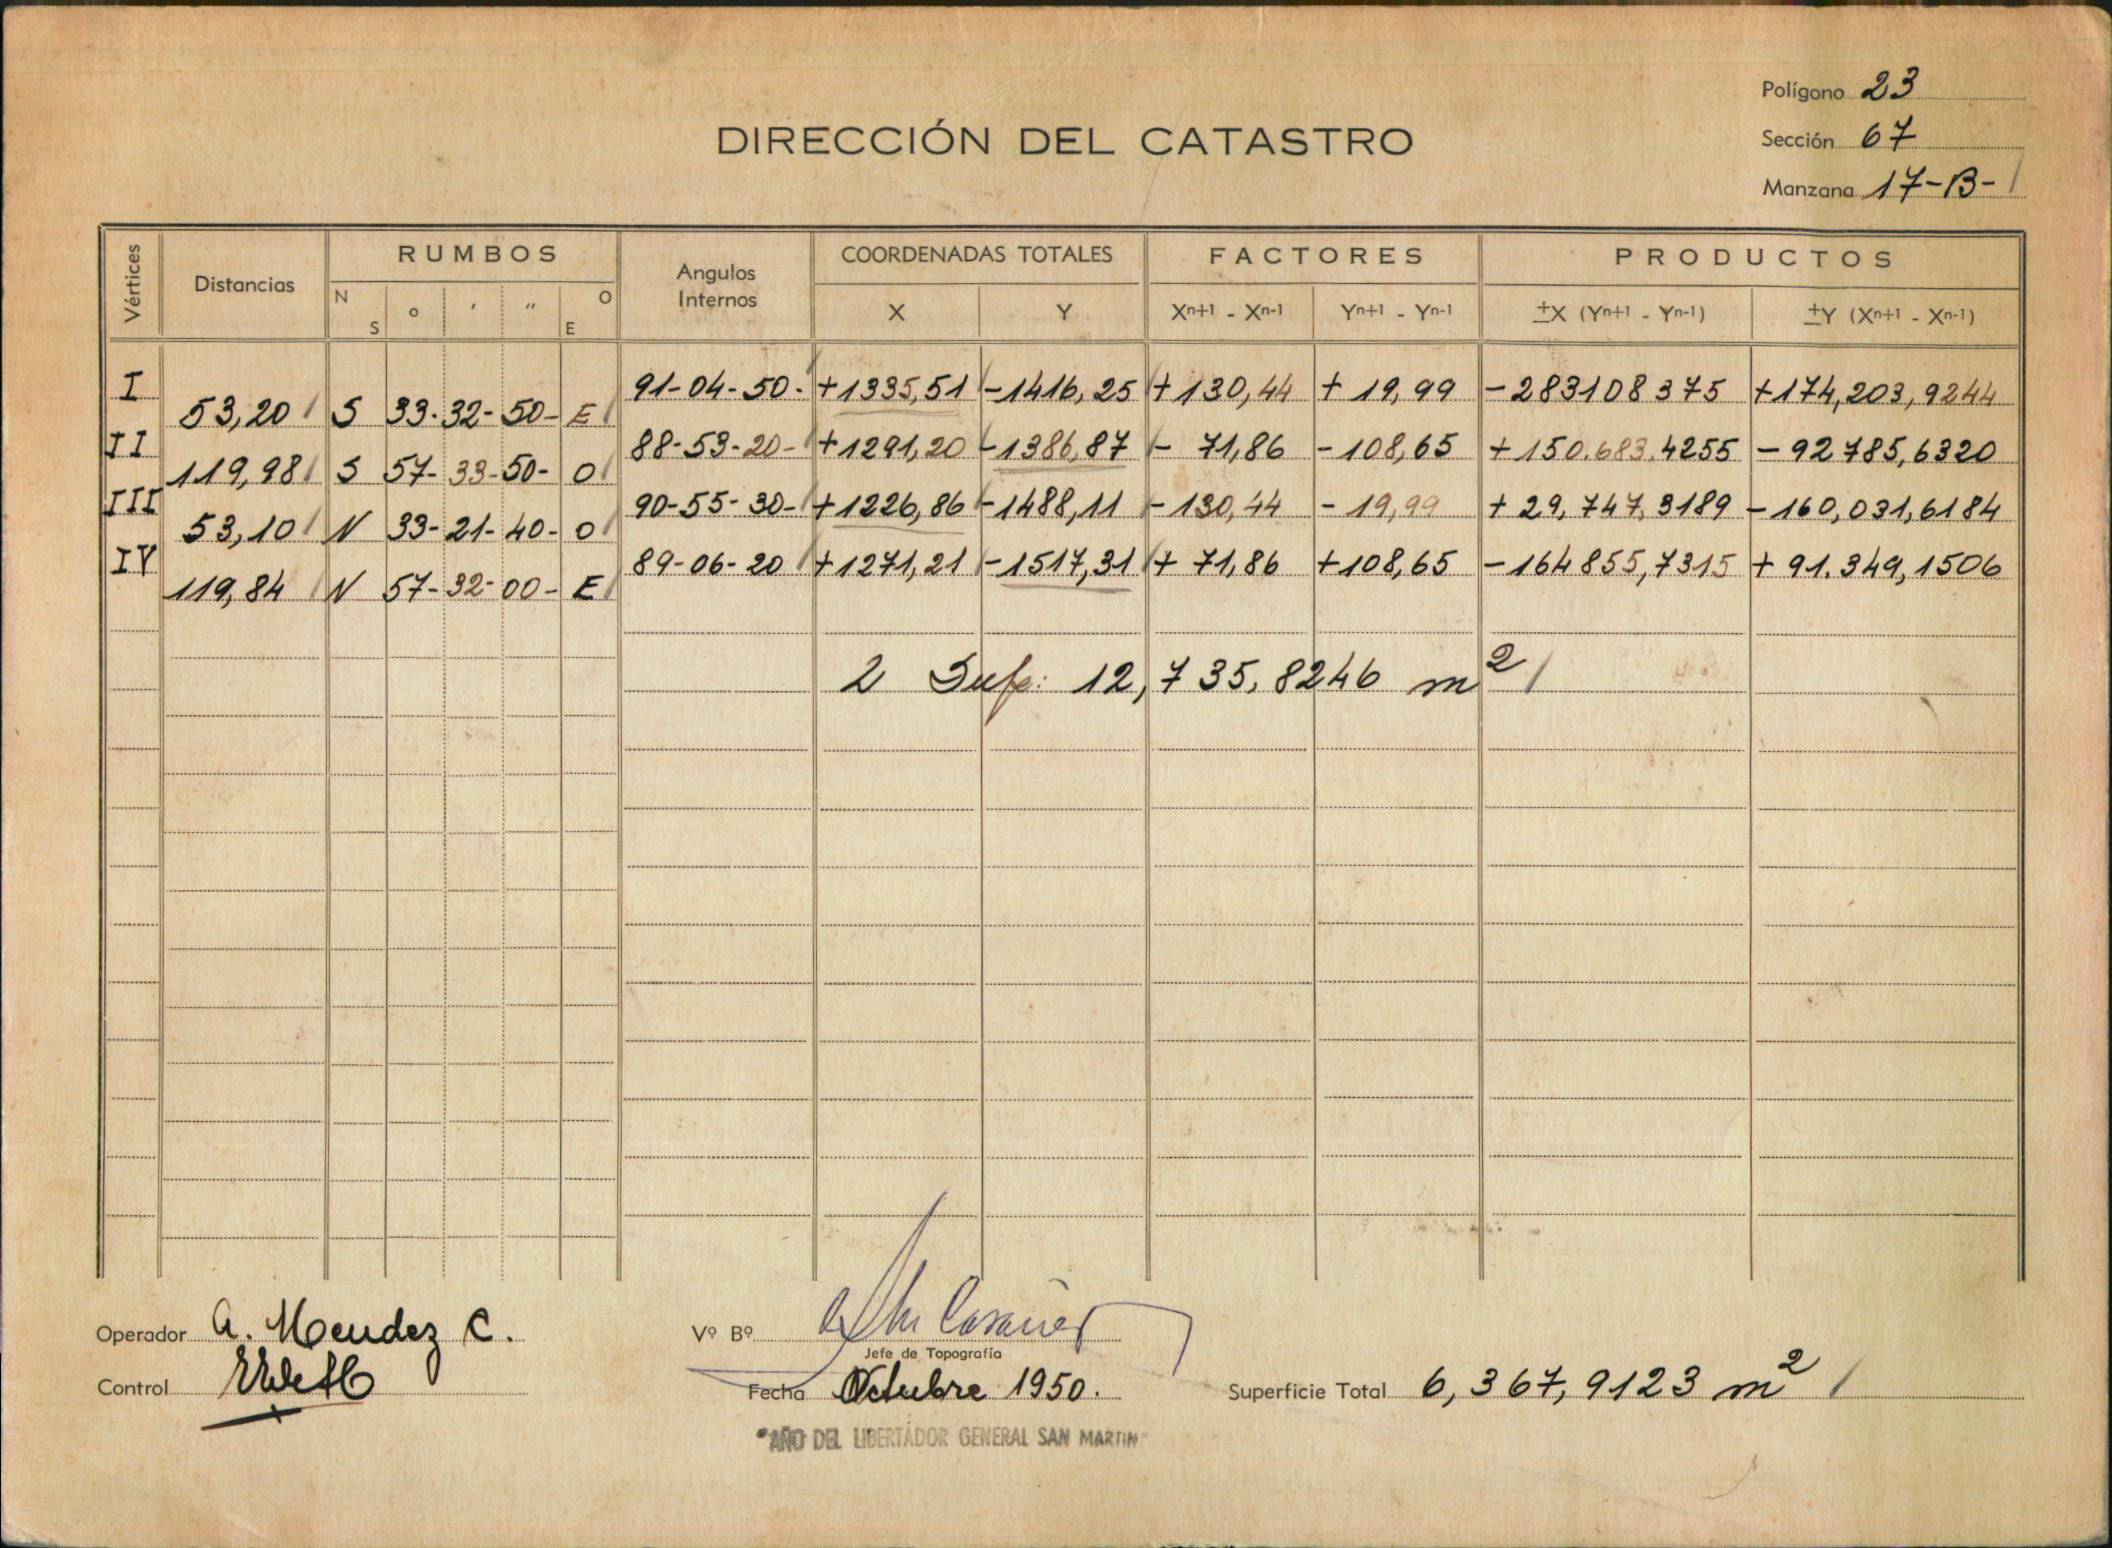 Polígono 23
DIRECCIÓN DEL CATASTRO
Sección 67
Manzana 17-B-
Vértices Distancias RUMBOS Angulos Internos COORDENADAS TOTALES FACTORES PRODUCTOS
N S o ' " O E X Y Xn+1 - Xn-1 Yn+1 - Yn-1 ±X (Yn+1 - Yn-1) ±Y (Xn+1 - Xn-1)
I 91-04-50- +1335,51 -1416,25 +130,44 + 19,99 -283108375 +174,203,9244
53,20 S 33-32-50- E
II 88-53-20- +1291,20 -1386,87 - 71,86 -108,65 +150.683.4255 -92785,6320
119,98 S 57-33-50- O
III 90-55-30- +1226,86 -1488,11 -130,44 - 19,99 + 29,747,3189 -160,031,6184
53,10 N 33-21-40- O
IV 89-06-20 +1271,21 -1517,31 + 71,86 +108,65 -164855,7315 + 91.349,1506
119,84 N 57-32-00- E
2 Sup: 12,735,8246 m²
Operador A. Mendez C.
Vº Bº
Jefe de Topografía
Control
Fecha Octubre 1950.
Superficie Total 6,367,9123 m²
"AÑO DEL LIBERTADOR GENERAL SAN MARTIN"